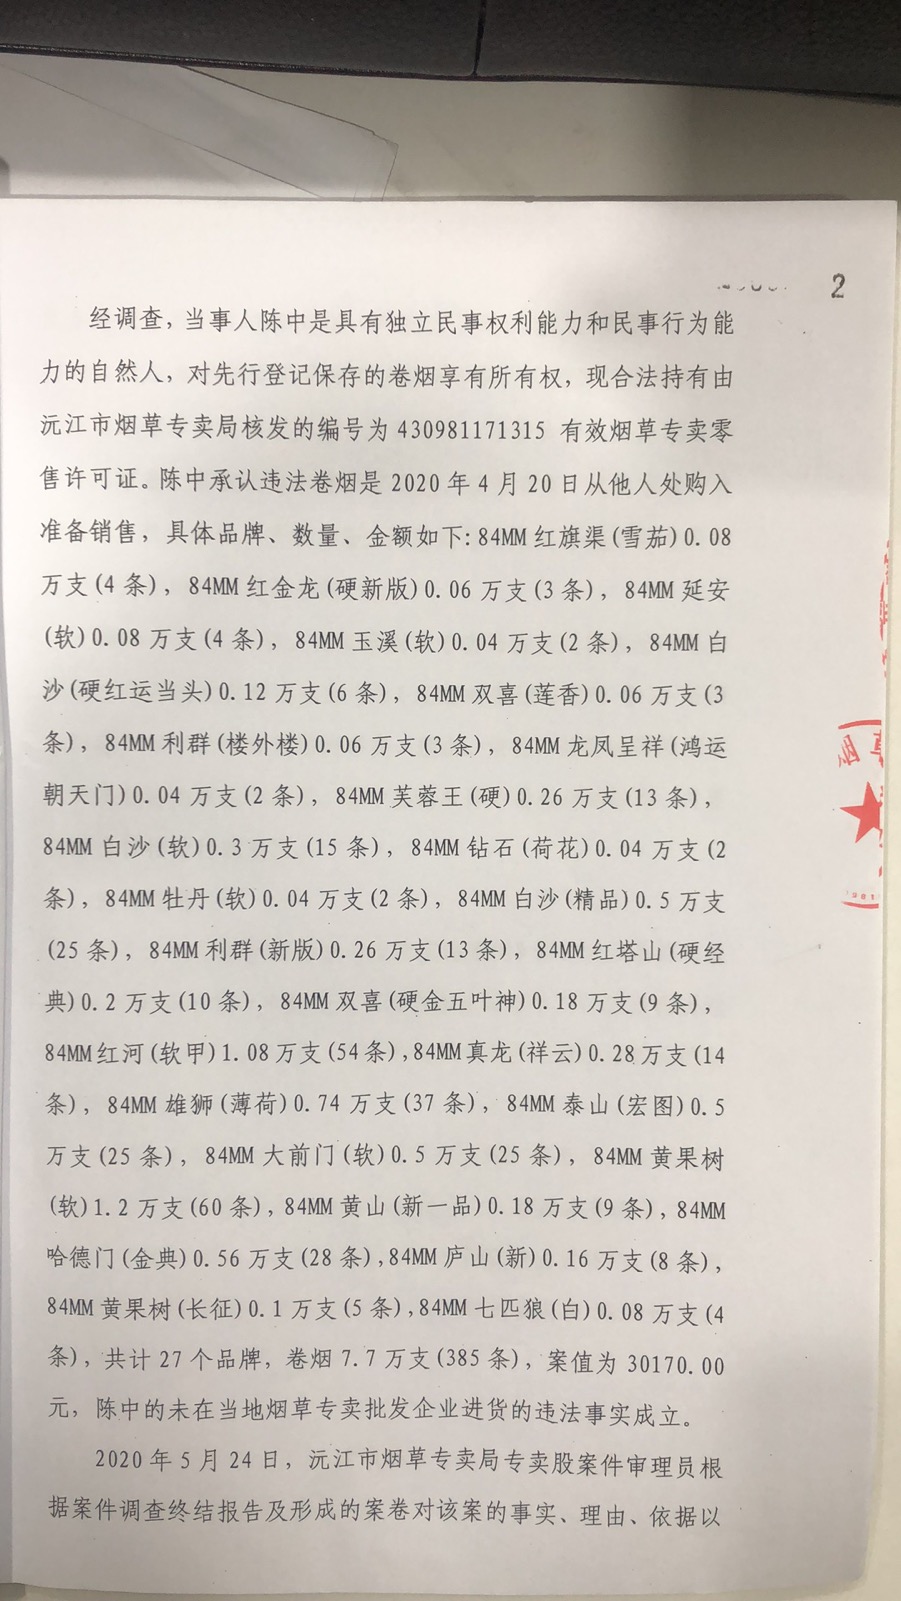 2
经调查，当事人陈中是具有独立民事权利能力和民事行为能
力的自然人，对先行登记保存的卷烟享有所有权，现合法持有由
沅江市烟草专卖局核发的编号为 430981171315 有效烟草专卖零
售许可证。陈中承认违法卷烟是 2020 年 4 月 20 日从他人处购入
准备销售，具体品牌、数量、金额如下：84MM 红旗渠(雪茄)0.08
万支(4 条)，84MM 红金龙(硬新版)0.06 万支(3 条)，84MM 延安
(软)0.08 万支(4 条)，84MM 玉溪(软)0.04 万支(2 条)，84MM 白
沙(硬红运当头)0.12 万支(6 条)，84MM 双喜(莲香)0.06 万支(3
条)，84MM 利群(楼外楼)0.06 万支(3 条)，84MM 龙凤呈祥(鸿运
朝天门)0.04 万支(2 条)，84MM 芙蓉王(硬)0.26 万支(13 条)，
84MM 白沙(软)0.3 万支(15 条)，84MM 钻石(荷花)0.04 万支(2
条)，84MM 牡丹(软)0.04 万支(2 条)，84MM 白沙(精品)0.5 万支
(25 条)，84MM 利群(新版)0.26 万支(13 条)，84MM 红塔山(硬经
典)0.2 万支(10 条)，84MM 双喜(硬金五叶神)0.18 万支(9 条)，
84MM 红河(软甲)1.08 万支(54 条),84MM 真龙(祥云)0.28 万支(14
条)，84MM 雄狮(薄荷)0.74 万支(37 条)，84MM 泰山(宏图)0.5
万支(25 条)，84MM 大前门(软)0.5 万支(25 条)，84MM 黄果树
(软)1.2 万支(60 条),84MM 黄山(新一品)0.18 万支(9 条),84MM
哈德门(金典)0.56 万支(28 条),84MM 庐山(新)0.16 万支(8 条)，
84MM 黄果树(长征)0.1 万支(5 条),84MM 七匹狼(白)0.08 万支(4
条)，共计 27 个品牌，卷烟 7.7 万支(385 条)，案值为 30170.00
元，陈中的未在当地烟草专卖批发企业进货的违法事实成立。
2020 年 5 月 24 日，沅江市烟草专卖局专卖股案件审理员根
据案件调查终结报告及形成的案卷对该案的事实、理由、依据以
烟草